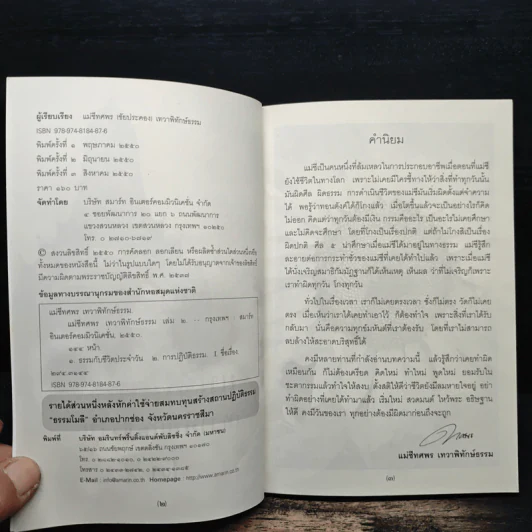 ผู้เรียบเรียง แม่ชีทศพร (ชัยประคอง) เทวาพิทักษ์ธรรม
ISBN 978-974-8184-87-6
พิมพ์ครั้งที่ ๑ พฤษภาคม ๒๕๕๐
พิมพ์ครั้งที่ ๒ มิถุนายน ๒๕๕๐
พิมพ์ครั้งที่ ๓ สิงหาคม ๒๕๕๐
ราคา ๑๖๐ บาท
จัดทำโดย บริษัท สมาร์ท อินเตอร์คอมมิวนิเคชั่น จำกัด
๔ ซอยพัฒนาการ ๒๐ แยก ๖ ถนนพัฒนาการ
แขวงสวนหลวง เขตสวนหลวง กรุงเทพฯ ๑๐๒๕๐
© สงวนลิขสิทธิ์ ๒๕๕๐ การคัดลอก ลอกเลียน หรือผลิตซ้ำส่วนใดส่วนหนึ่งหรือ
ทั้งหมดของหนังสือนี้ ไม่ว่าในรูปแบบใดๆ โดยไม่ได้รับอนุญาตจากเจ้าของลิขสิทธิ์
มีความผิดตามพระราชบัญญัติลิขสิทธิ์ พ.ศ. ๒๕๓๗
ข้อมูลทางบรรณานุกรมของสำนักหอสมุดแห่งชาติ
แม่ชีทศพร เทวาพิทักษ์ธรรม
แม่ชีทศพร เทวาพิทักษ์ธรรม เล่ม ๒. -- กรุงเทพฯ : สมาร์ท
อินเตอร์คอมมิวนิเคชั่น, ๒๕๕๐.
๑๔๔ หน้า
๑. ธรรมกับชีวิตประจำวัน. ๒. การปฏิบัติธรรม. I. ชื่อเรื่อง
ISBN 978-974-8184-87-6
รายได้ส่วนหนึ่งหลังหักค่าใช้จ่ายสมทบทุนสร้างสถานปฏิบัติธรรม
"ธรรมโมลี" อำเภอปากช่อง จังหวัดนครราชสีมา
พิมพ์ที่ บริษัท อมรินทร์พริ้นติ้งแอนด์พับลิชชิ่ง จำกัด (มหาชน)
ถนนชัยพฤกษ์ เขตตลิ่งชัน กรุงเทพฯ ๑๐๑๗๐
E-Mail : info@amarin.co.th Homepage : http://www.amarin.co.th
(๒)
คำนิยม
แม่ชีเป็นคนหนึ่งที่ล้มเหลวในการประกอบอาชีพเมื่อตอนที่แม่ชี
ยังใช้ชีวิตในทางโลก เพราะไม่เคยมีใครชี้ทางให้ว่าสิ่งที่ทำทุกวันนั้น
มันผิดศีล ผิดธรรม การดำเนินชีวิตของแม่ชีมันเริ่มผิดตั้งแต่จำความ
ได้ พอรู้ว่าหาเงินตังค์ได้ก็โกงแล้ว เมื่อโตขึ้นแล้วจะเป็นอย่างไรก็คิด
ไม่ออก คิดแค่ว่าทุกวันต้องมีเงิน กรรมคืออะไร เป็นอะไรไม่เคยศึกษา
และไม่คิดจะศึกษา โดยที่โกงเป็นเรื่องปกติ แต่ถ้าไม่โกงสิเป็นเรื่อง
ผิดปกติ ศีล ๕ มาศึกษาเมื่อแม่ชีได้มาอยู่ในทางธรรม แม่ชีรู้สึก
ละอายต่อการกระทำชั่วของแม่ชีที่เคยได้ทำไปแล้ว เพราะเมื่อแม่ชี
ได้นั่งเจริญสมาธิกัมมัฏฐานก็ได้เห็นเหตุ เห็นผล ว่าที่ไม่เจริญก็เพราะ
เราทำผิดทุกวัน โกงทุกวัน
ทั่วไปในเรื่องเวลา เราก็ไม่เคยตรงเวลา ชั่งก็ไม่ตรง วัดก็ไม่เคย
ตรง เมื่อเห็นว่าเราได้เคยทำเอาไว้ ก็ต้องทำใจ เพราะสิ่งที่เราได้รับ
กลับมา นั่นคือความทุกข์มหันต์ที่เราต้องรับ โดยที่เราไม่สามารถ
ลบล้างให้สะอาดบริสุทธิ์ได้
คงมีหลายท่านที่กำลังอ่านบทความนี้ แล้วรู้สึกว่าเคยทำผิด
เหมือนกัน ก็ไม่ต้องเครียด คิดใหม่ ทำใหม่ พูดใหม่ ยอมรับใน
ชะตากรรมแล้วทำใจให้สงบ ตั้งสติให้ดีว่าชีวิตยังมีลมหายใจอยู่ อย่า
ทำผิดอย่างที่เคยได้ทำมาแล้ว เริ่มใหม่ สวดมนต์ ไหว้พระ อธิษฐาน
ให้ดี คงมีวันของเรา ทุกอย่างต้องมีผิดมาก่อนถึงจะถูก
แม่ชีทศพร เทวาพิทักษ์ธรรม
(๓)